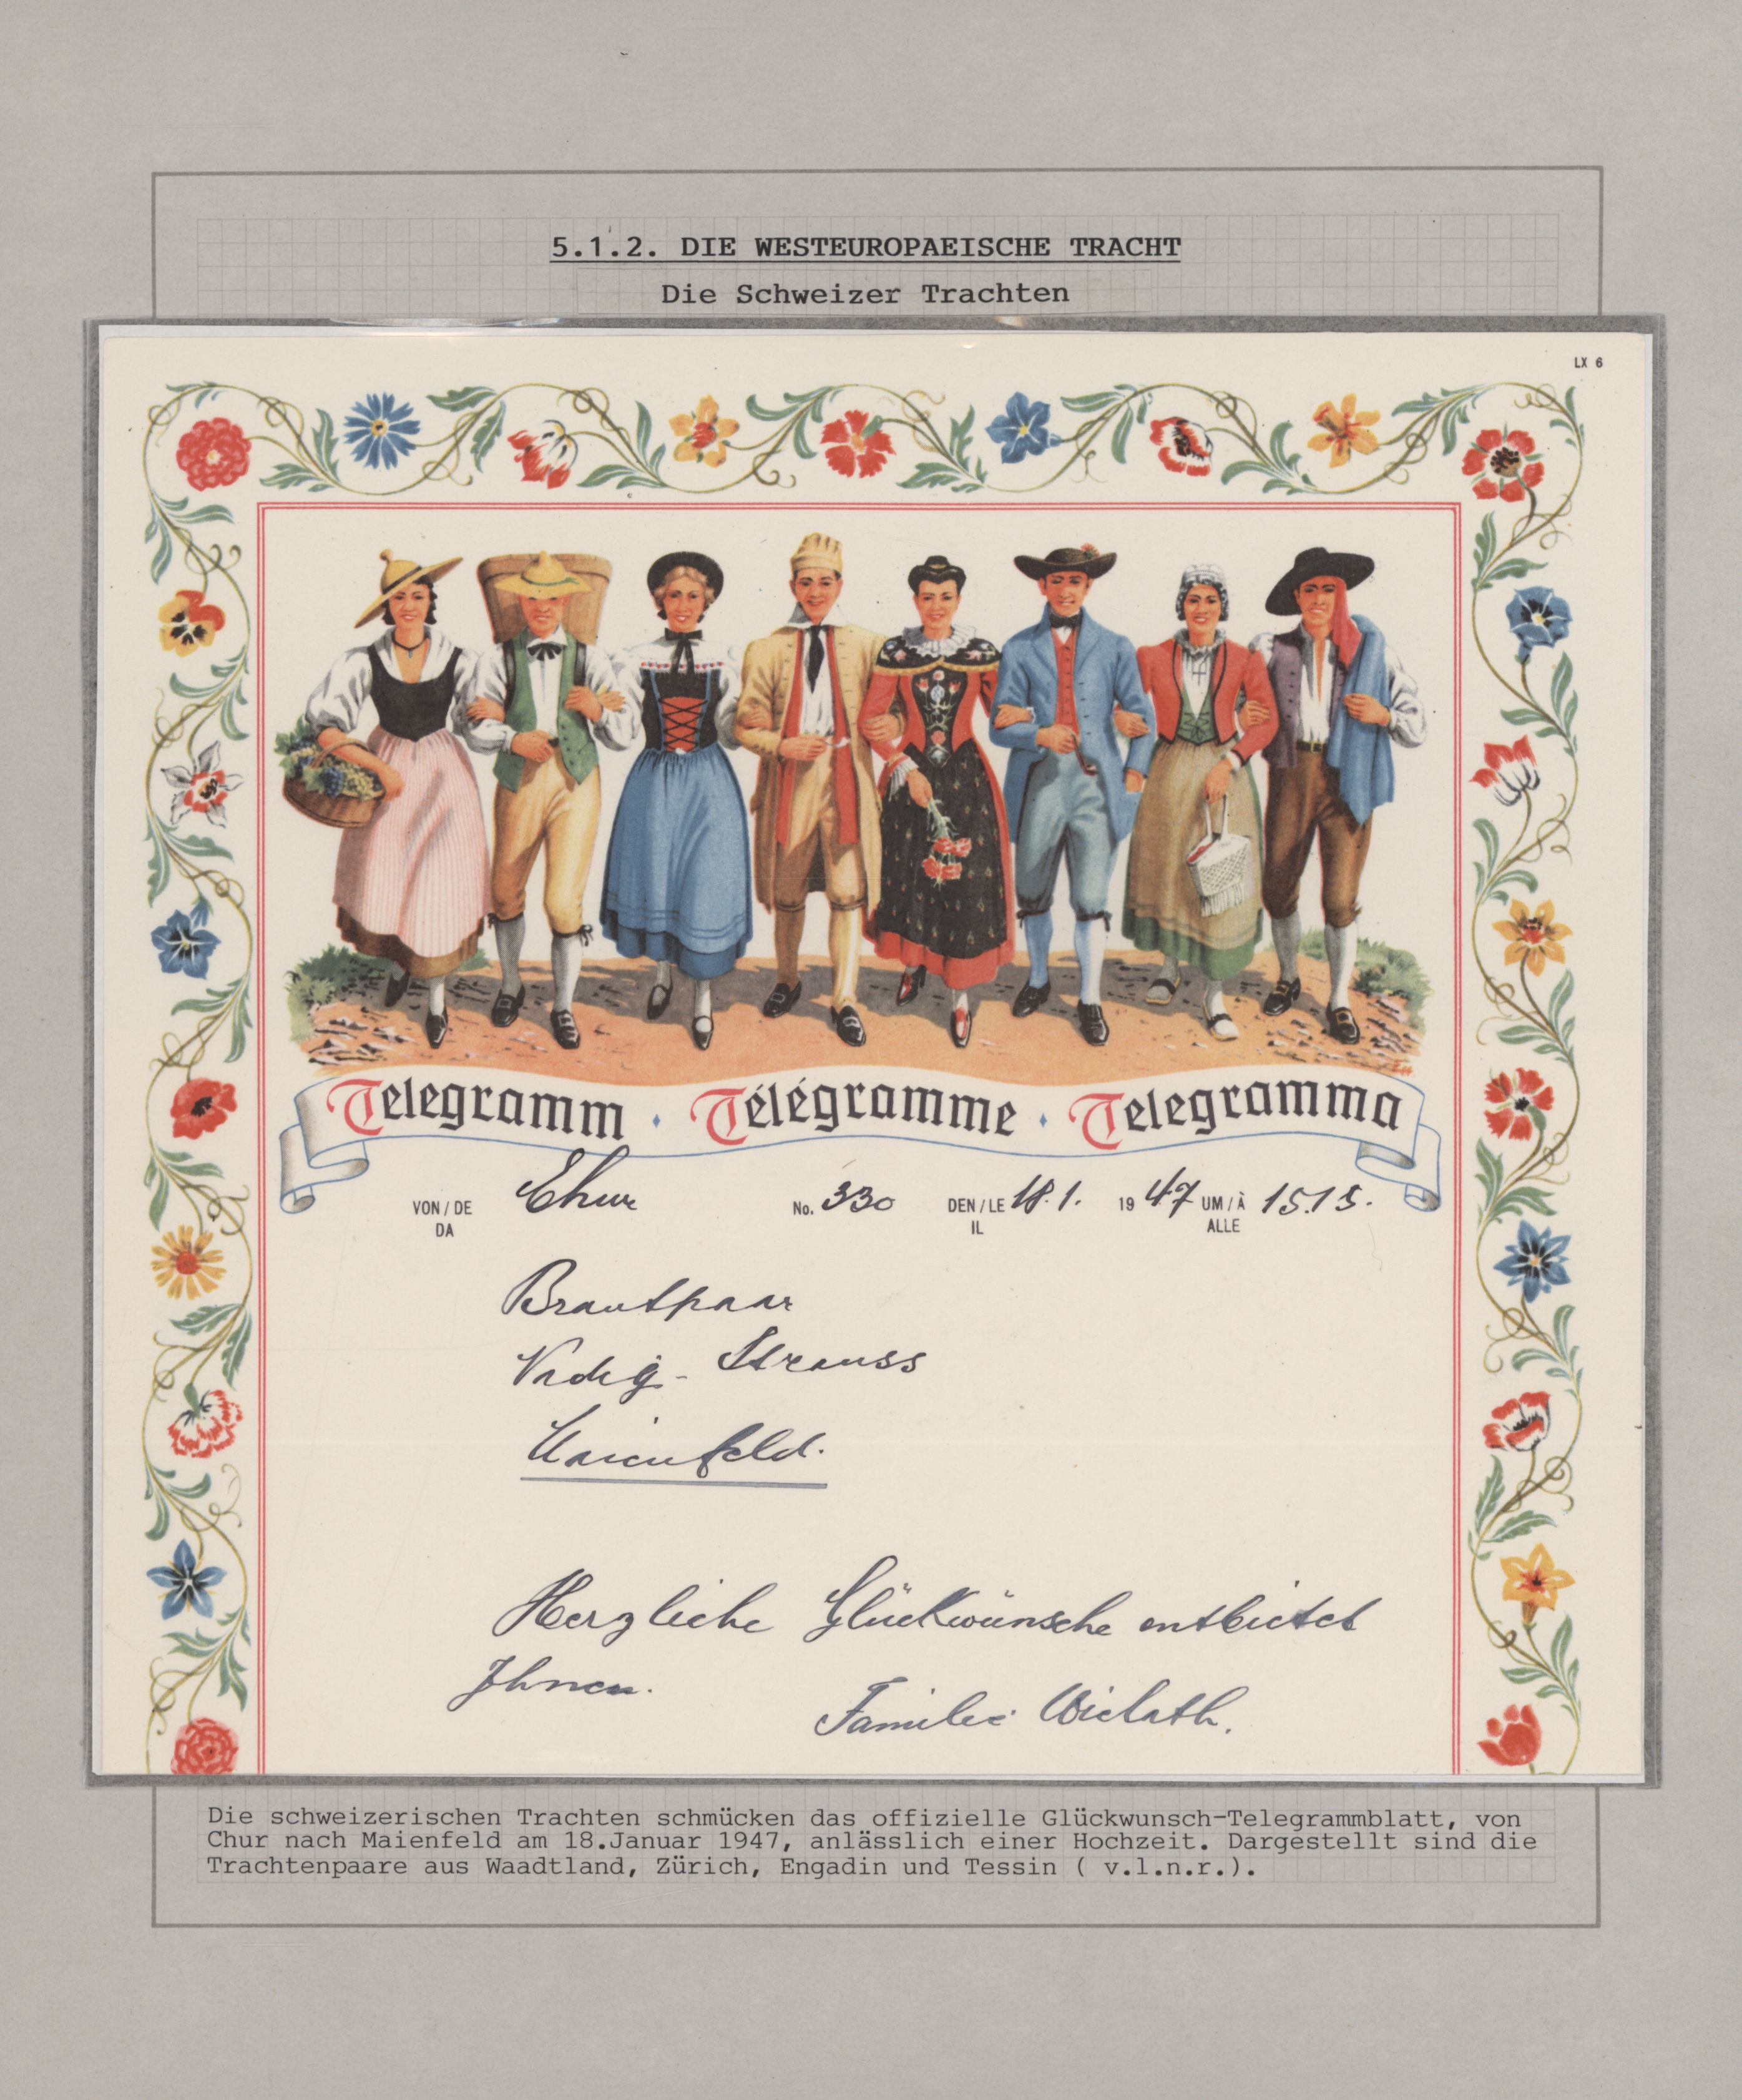 5.1.2. DIE WESTEUROPAEISCHE TRACHT
Die Schweizer Trachten
LX 6
Telegramm · Télégramme · Telegramma
VON / DE Chur No. 330 DEN / LE 18.1. 1947 UM / À 15.15.
DA IL ALLE
Brautpaar
Nadig - Strauss
Maienfeld.
Herzliche Glückwünsche entbietet
Ihnen.
Familie
Die schweizerischen Trachten schmücken das offizielle Glückwunsch-Telegrammblatt, von
Chur nach Maienfeld am 18.Januar 1947, anlässlich einer Hochzeit. Dargestellt sind die
Trachtenpaare aus Waadtland, Zürich, Engadin und Tessin ( v.l.n.r.).